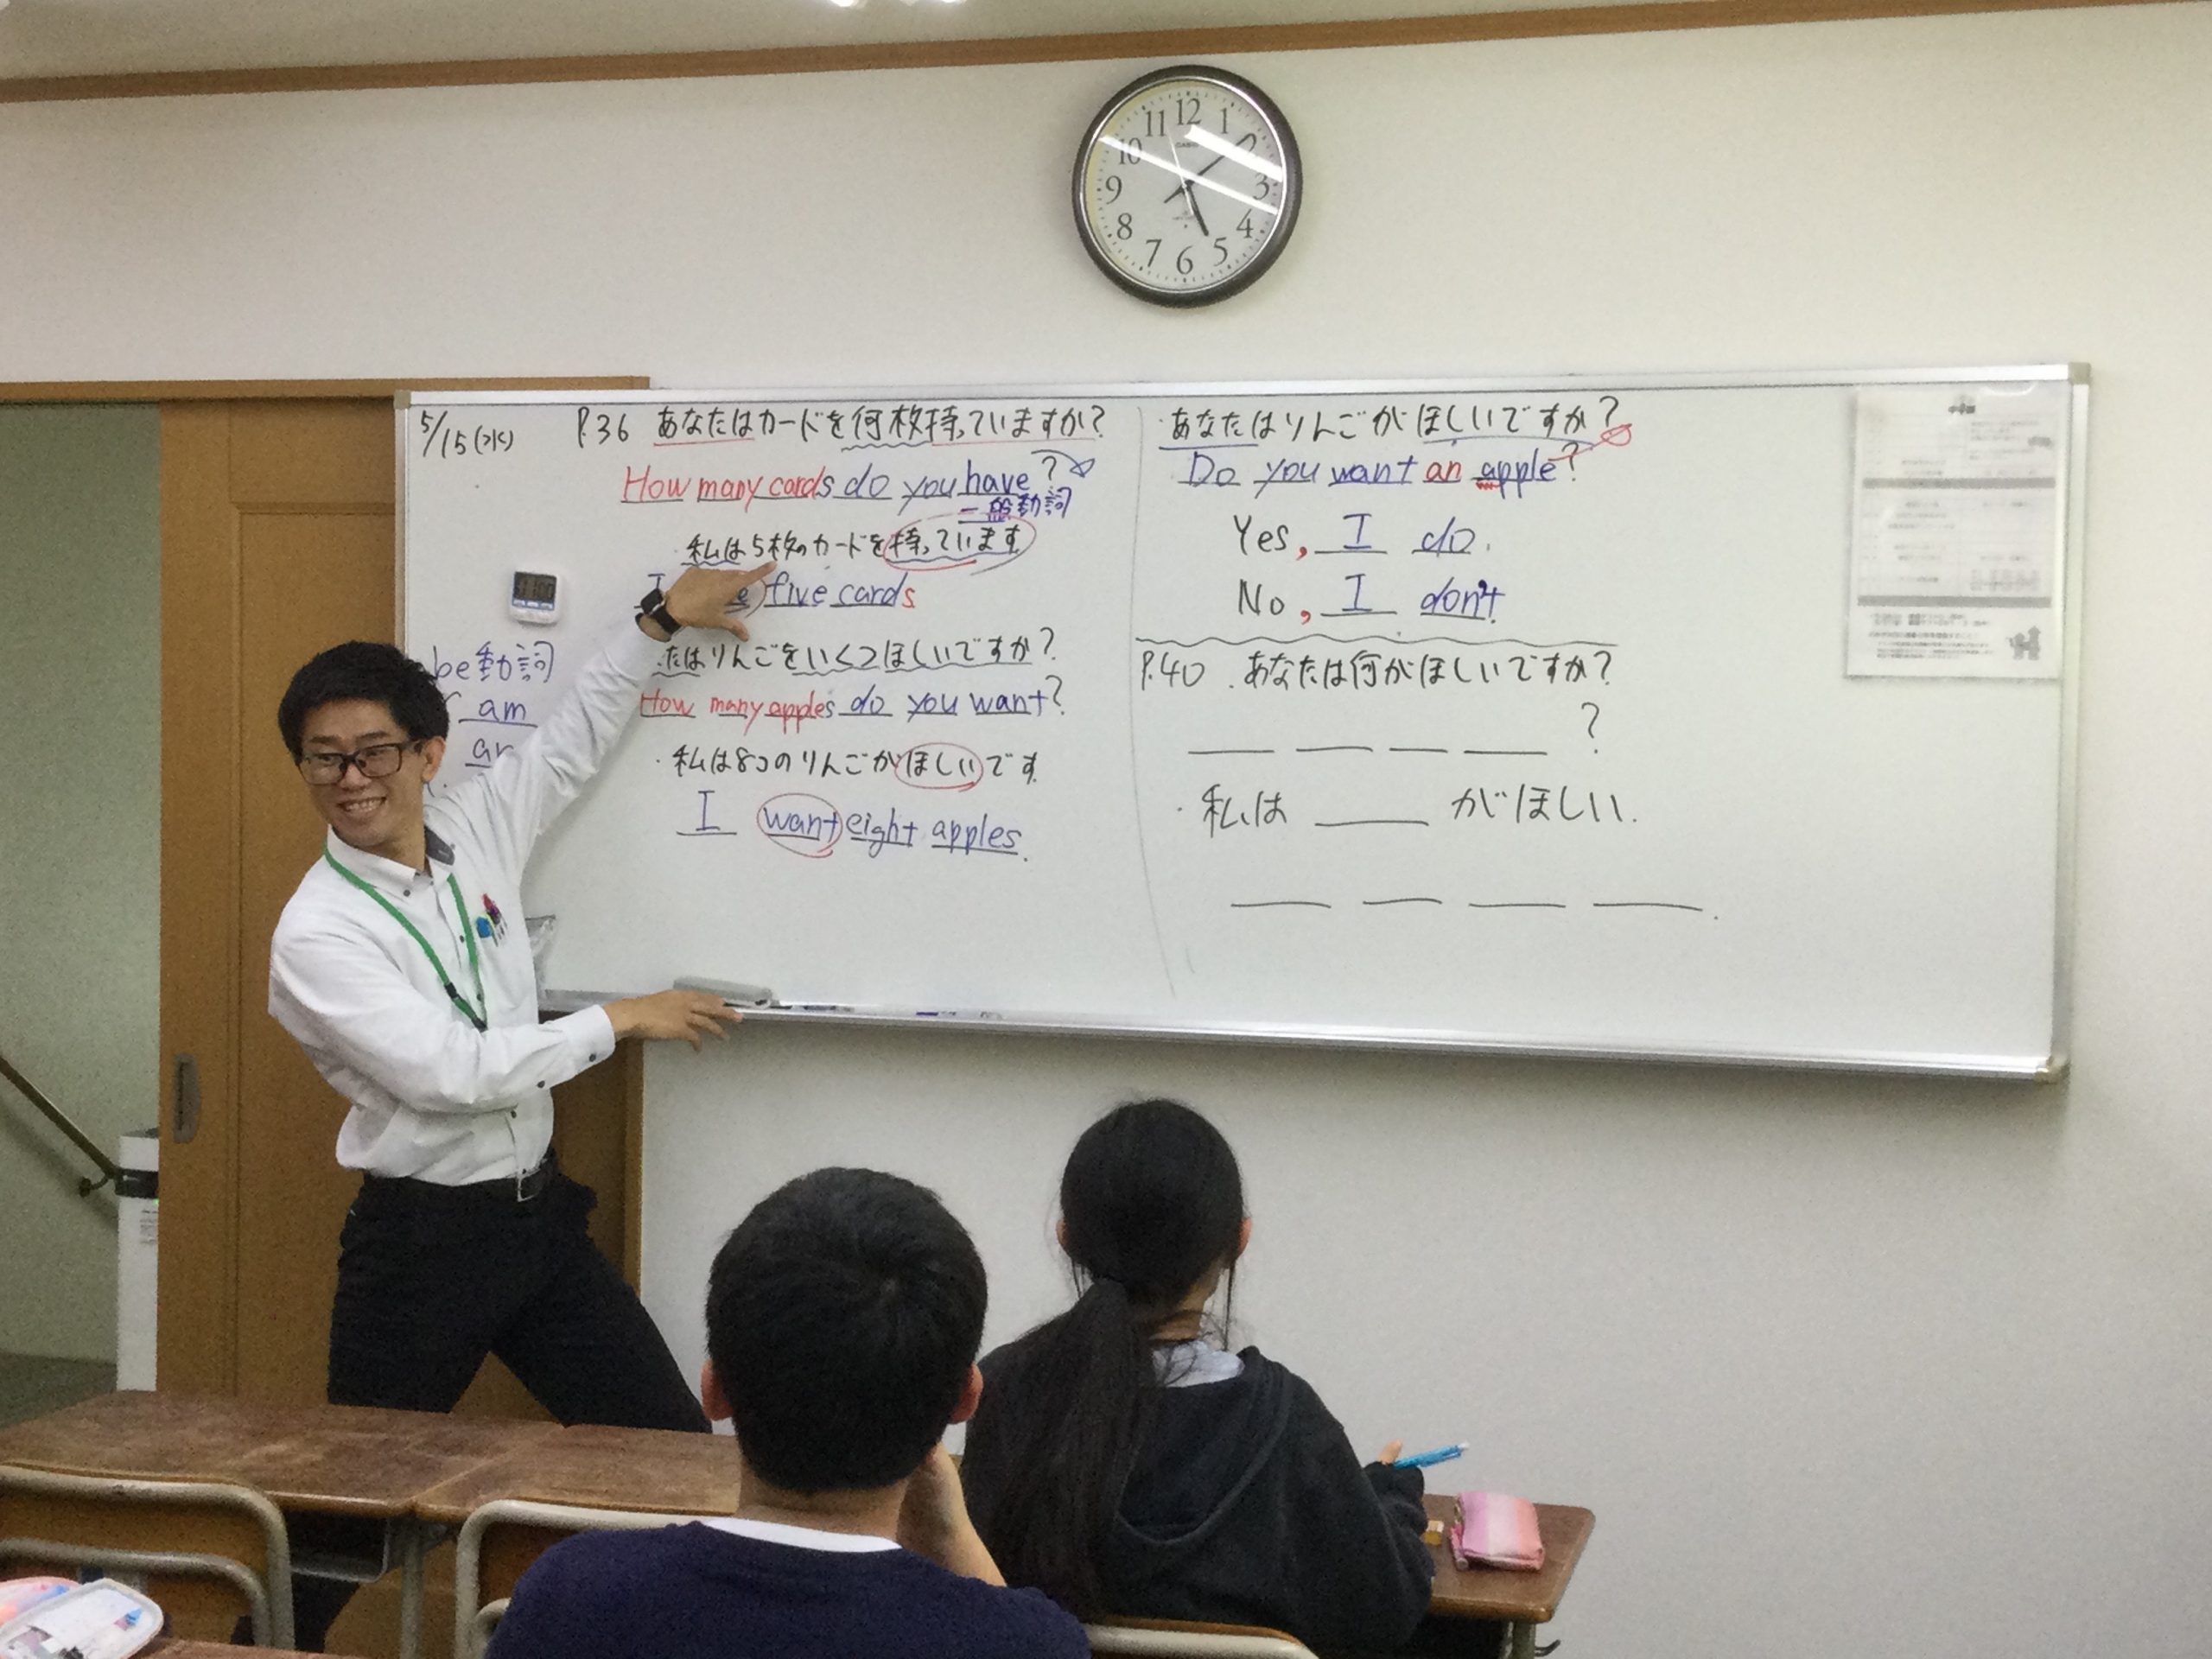 12
1
2
3
4
5
6
7
8
9
10
11
CASIO
5/15(水)
P.36 あなたはカードを何枚持っていますか?
How many cards do you have?
一般動詞
・私は5枚のカードを持っています。
I five cards
たはりんごをいくつほしいですか?
How many apples do you want?
・私は8つのりんごがほしいです。
I want eight apples.
be動詞
am
・あなたはりんごがほしいですか?
Do you want an apple?
Yes, I do.
No, I don't.
P.40 . あなたは何がほしいですか?
?
・私は ＿＿＿ がほしい.